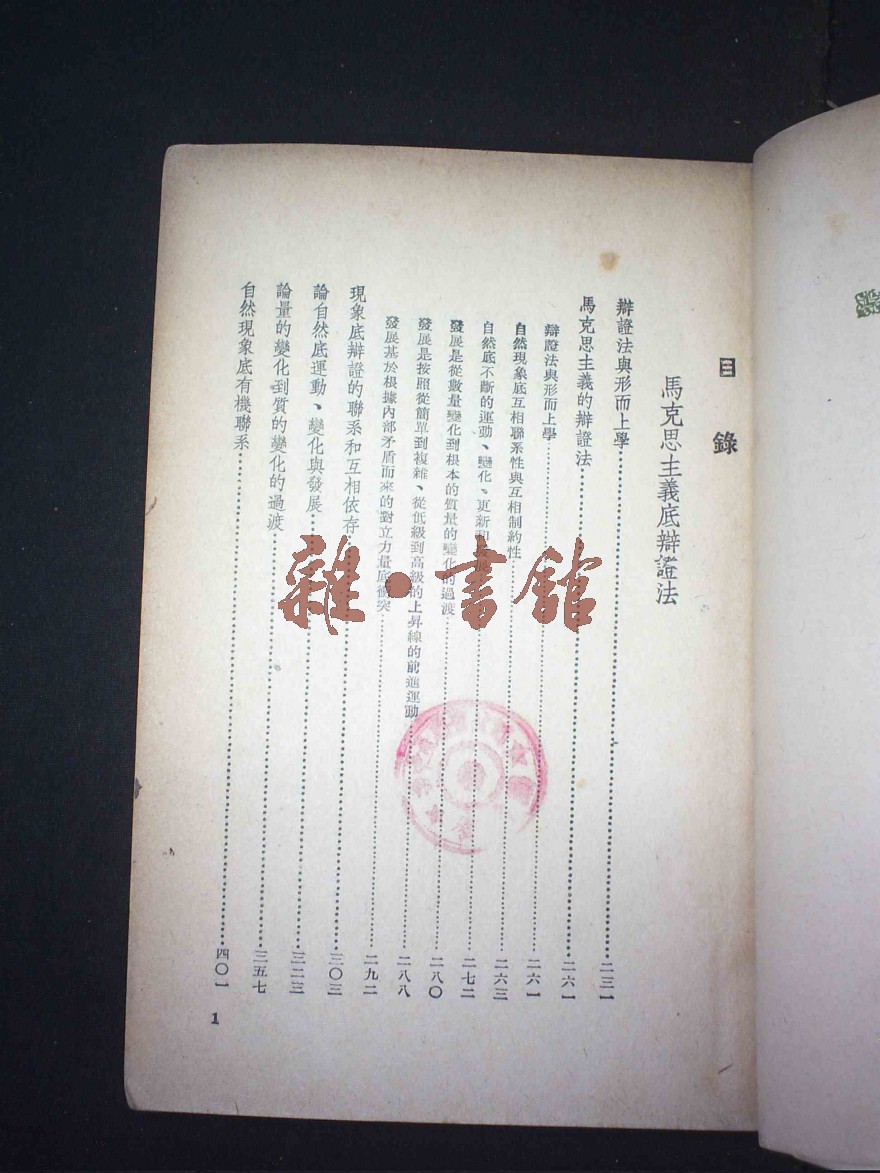 目錄
馬克思主義底辯證法
辯證法與形而上學……二三一
馬克思主義的辯證法……二六一
辯證法與形而上學……二六一
自然現象底互相聯系性與互相制約性……二六三
自然底不斷的運動、變化、更新和發展……二七二
發展是從數量變化到根本的質量的變化的過渡……二八〇
發展是按照從簡單到複雜、從低級到高級的上昇線的前進運動……二八八
發展基於根據內部矛盾而來的對立力量底衝突……二九二
現象底辯證的聯系和互相依存……三〇三
論自然底運動、變化與發展……三二三
論量的變化到質的變化的過渡……三五七
自然現象底有機聯系……四〇一
1
雜·書館